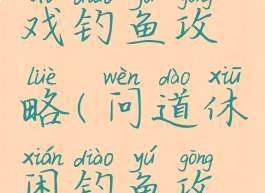 戏钓鱼攻
lüè wèn dào xiū
略(问道休
xián diào yú gōng
闲钓鱼攻